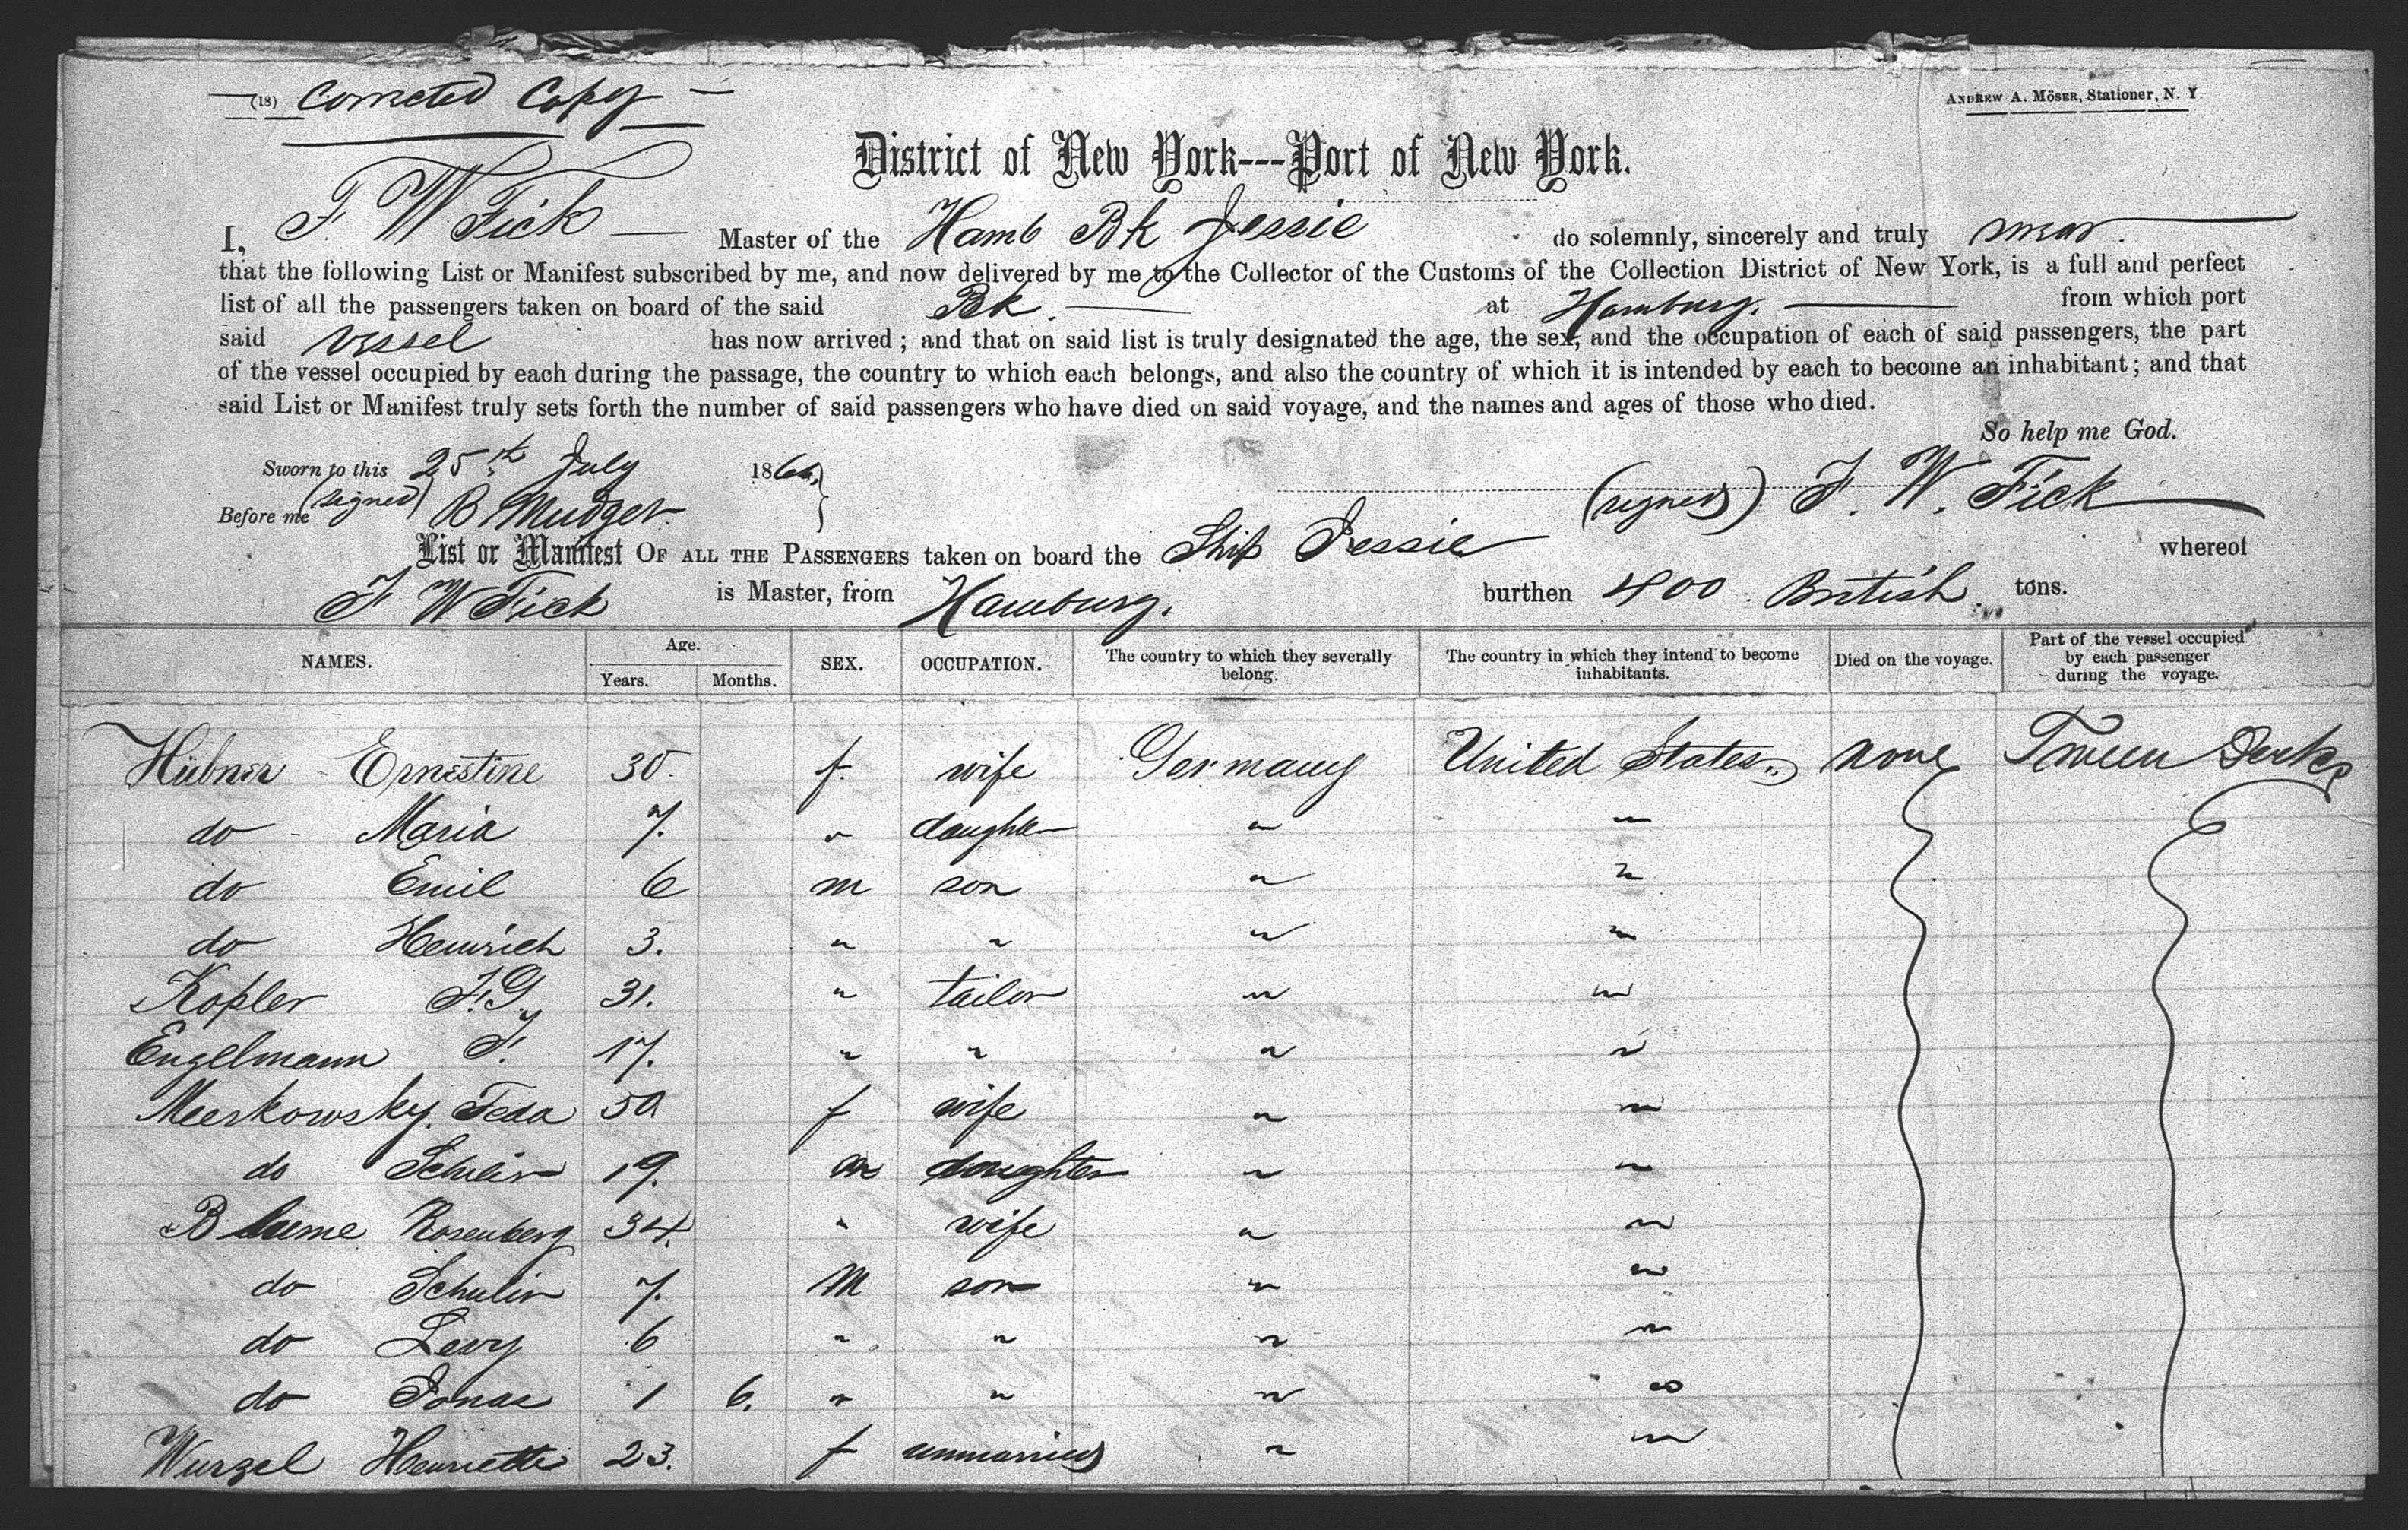 (18) Corrected Copy
ANDREW A. MÖSER, Stationer, N. Y.
District of New York---Port of New York.
I, F. W Fick Master of the Hamb Bk Jessie do solemnly, sincerely and truly swear
that the following List or Manifest subscribed by me, and now delivered by me to the Collector of the Customs of the Collection District of New York, is a full and perfect
list of all the passengers taken on board of the said Bk. at Hamburg. from which port
said vessel has now arrived; and that on said list is truly designated the age, the sex, and the occupation of each of said passengers, the part
of the vessel occupied by each during the passage, the country to which each belongs, and also the country of which it is intended by each to become an inhabitant; and that
said List or Manifest truly sets forth the number of said passengers who have died on said voyage, and the names and ages of those who died.
So help me God.
Sworn to this 25th July 1866
Before me (signed) B Mudget. (signed) F. W. Fick
List or Manifest OF ALL THE PASSENGERS taken on board the Ship Jessie whereof
F W Fick is Master, from Hamburg. burthen 400 British tons.
NAMES. Age. Years. Months. SEX. OCCUPATION. The country to which they severally belong. The country in which they intend to become inhabitants. Died on the voyage. Part of the vessel occupied by each passenger during the voyage.
Hübner Ernestine 30. f. wife Germany United States. None Tween Decks
do - Maria 7. " daughter " "
do Emil 6 m son " "
do Heinrich 3. " " " "
Kopler F. G. 31. " tailor " "
Engelmann F. 17. " " " "
Meerkowsky. Feda 50 f wife " "
do Schulin 19. daughter " "
Blume Rosenberg 34. " wife " "
do Schulin 7. M son " "
do Levy 6 " " " "
do Jonas 1 6. " " " "
Wurzel Henriette 23. f unmarried " "